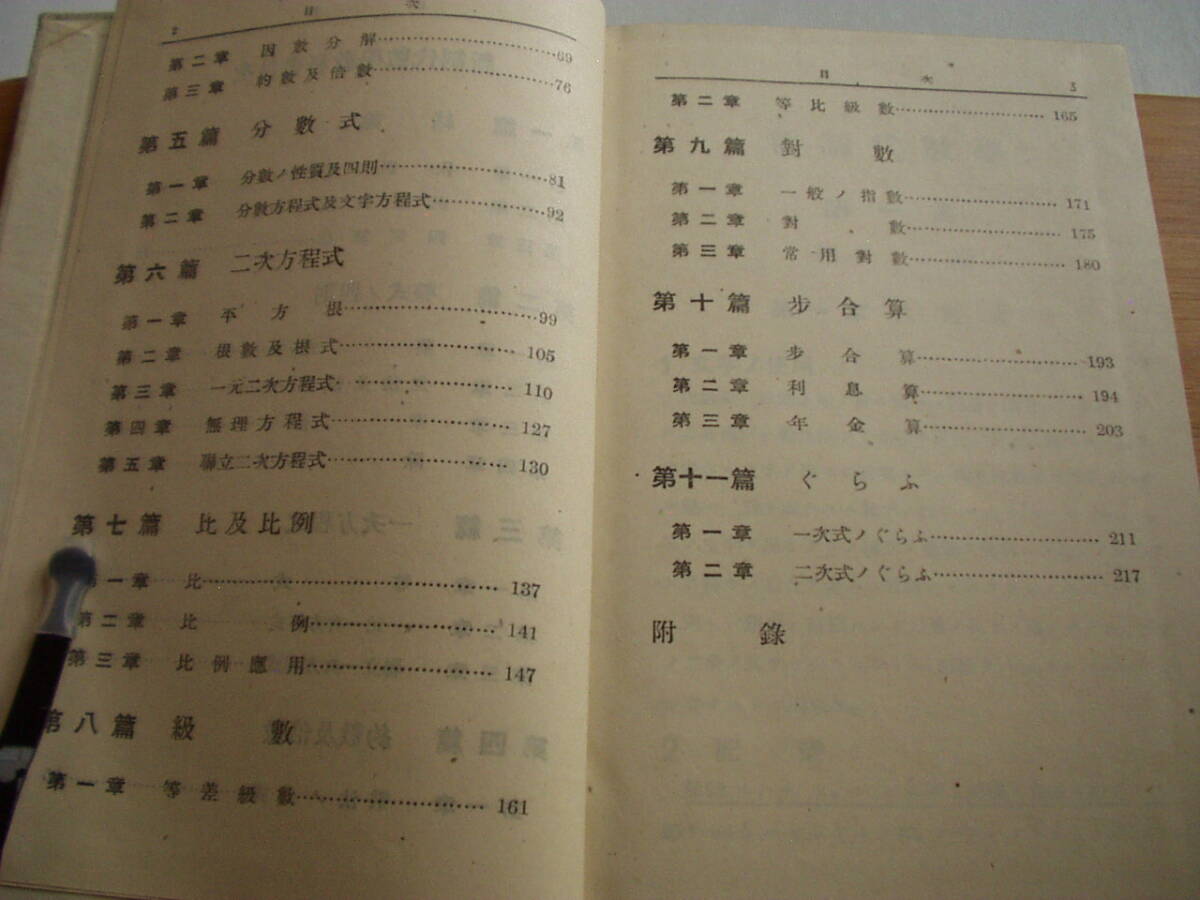 2 目次
第二章 因數分解 69
第三章 約數及倍數 76
第五篇 分數式
第一章 分數ノ性質及四則 81
第二章 分數方程式及文字方程式 92
第六篇 二次方程式
第一章 平方根 99
第二章 根數及根式 105
第三章 一元二次方程式 110
第四章 無理方程式 127
第五章 聯立二次方程式 130
第七篇 比及比例
第一章 比 137
第二章 比例 141
第三章 比例應用 147
第八篇 級數
第一章 等差級數 161
目次 3
第二章 等比級數 165
第九篇 對數
第一章 一般ノ指數 171
第二章 對數 175
第三章 常用對數 180
第十篇 步合算
第一章 步合算 193
第二章 利息算 194
第三章 年金算 203
第十一篇 ぐらふ
第一章 一次式ノぐらふ 211
第二章 二次式ノぐらふ 217
附錄